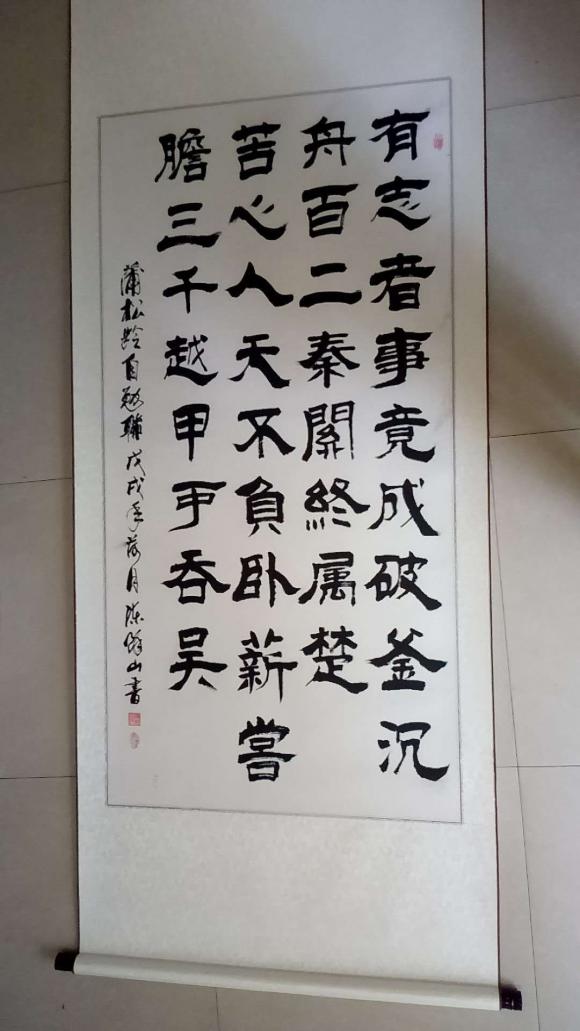 有志者事竟成破釜沉
舟百二秦關終属楚
苦心人天不負卧薪嘗
膽三千越甲可吞吴
蒲松龄自勉聯戊戌年月陈山書